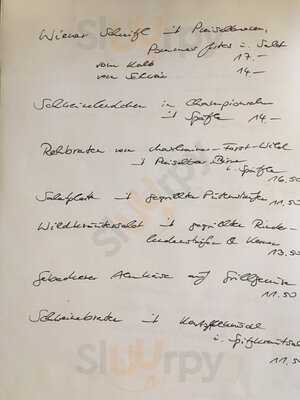 Wiener Schnitzel mit Preiselbeeren,
Pommes frites u. Salat
vom Kalb 17.-
vom Schwein 14.-
Schweinelendchen in Champignonrahm
mit Spätzle 14.-
Rehbraten vom Forst-Wild
mit Preiselbeer Birne
u. Spätzle
16.50
Salatplatte mit gegrillten Putenstreifen
11.50
Wildkräutersalat mit gegrillten Rinder-
lendenstreifen &
13.50
Gebackener Almkäse auf Grillgemüse
11.50
Schweinebraten mit Kartoffelknödel
u. Spitzkrautsalat
11.50
sluurpy